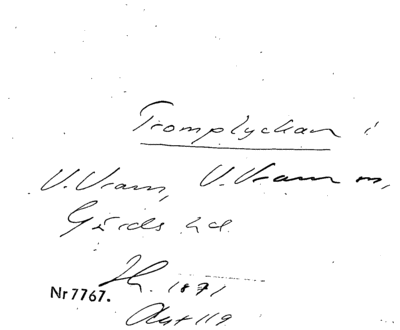 Tromplyckan i
V. Vram, V. Vram sn,
Gärds hd.
Nr 7767.
1871
Akt 119